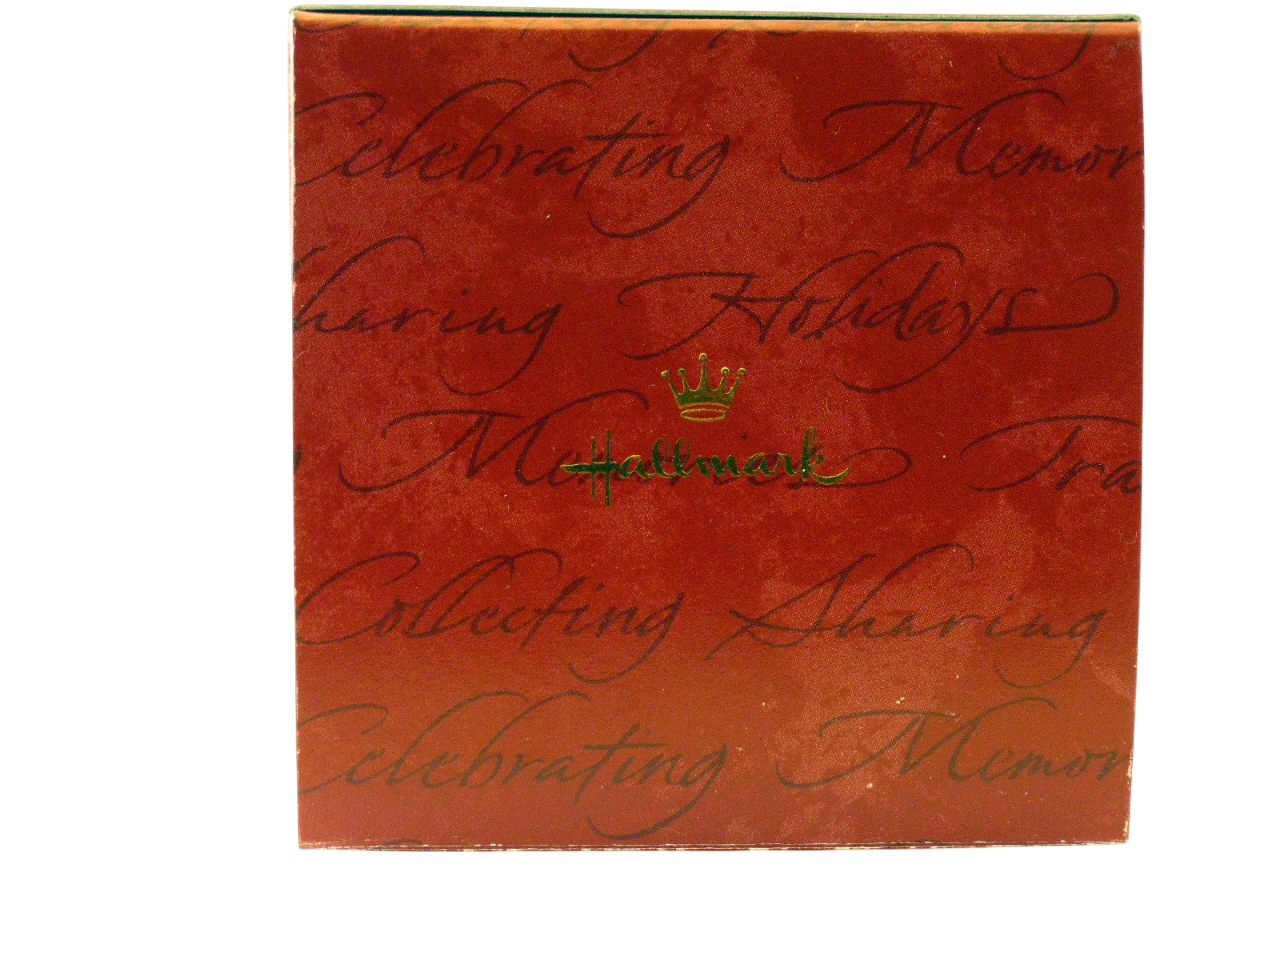 Celebrating Memor
Sharing Holidays
Memories Tra
Hallmark
Collecting Sharing
Celebrating Memor